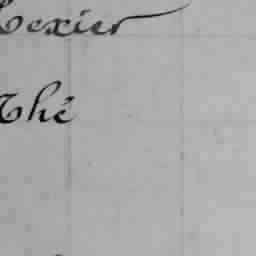 Texier
Thé